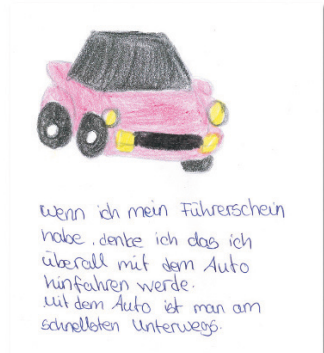 Wenn ich mein Führerschein
habe, denke ich das ich
überall mit dem Auto
hinfahren werde.
Mit dem Auto ist man am
schnellsten Unterwegs.